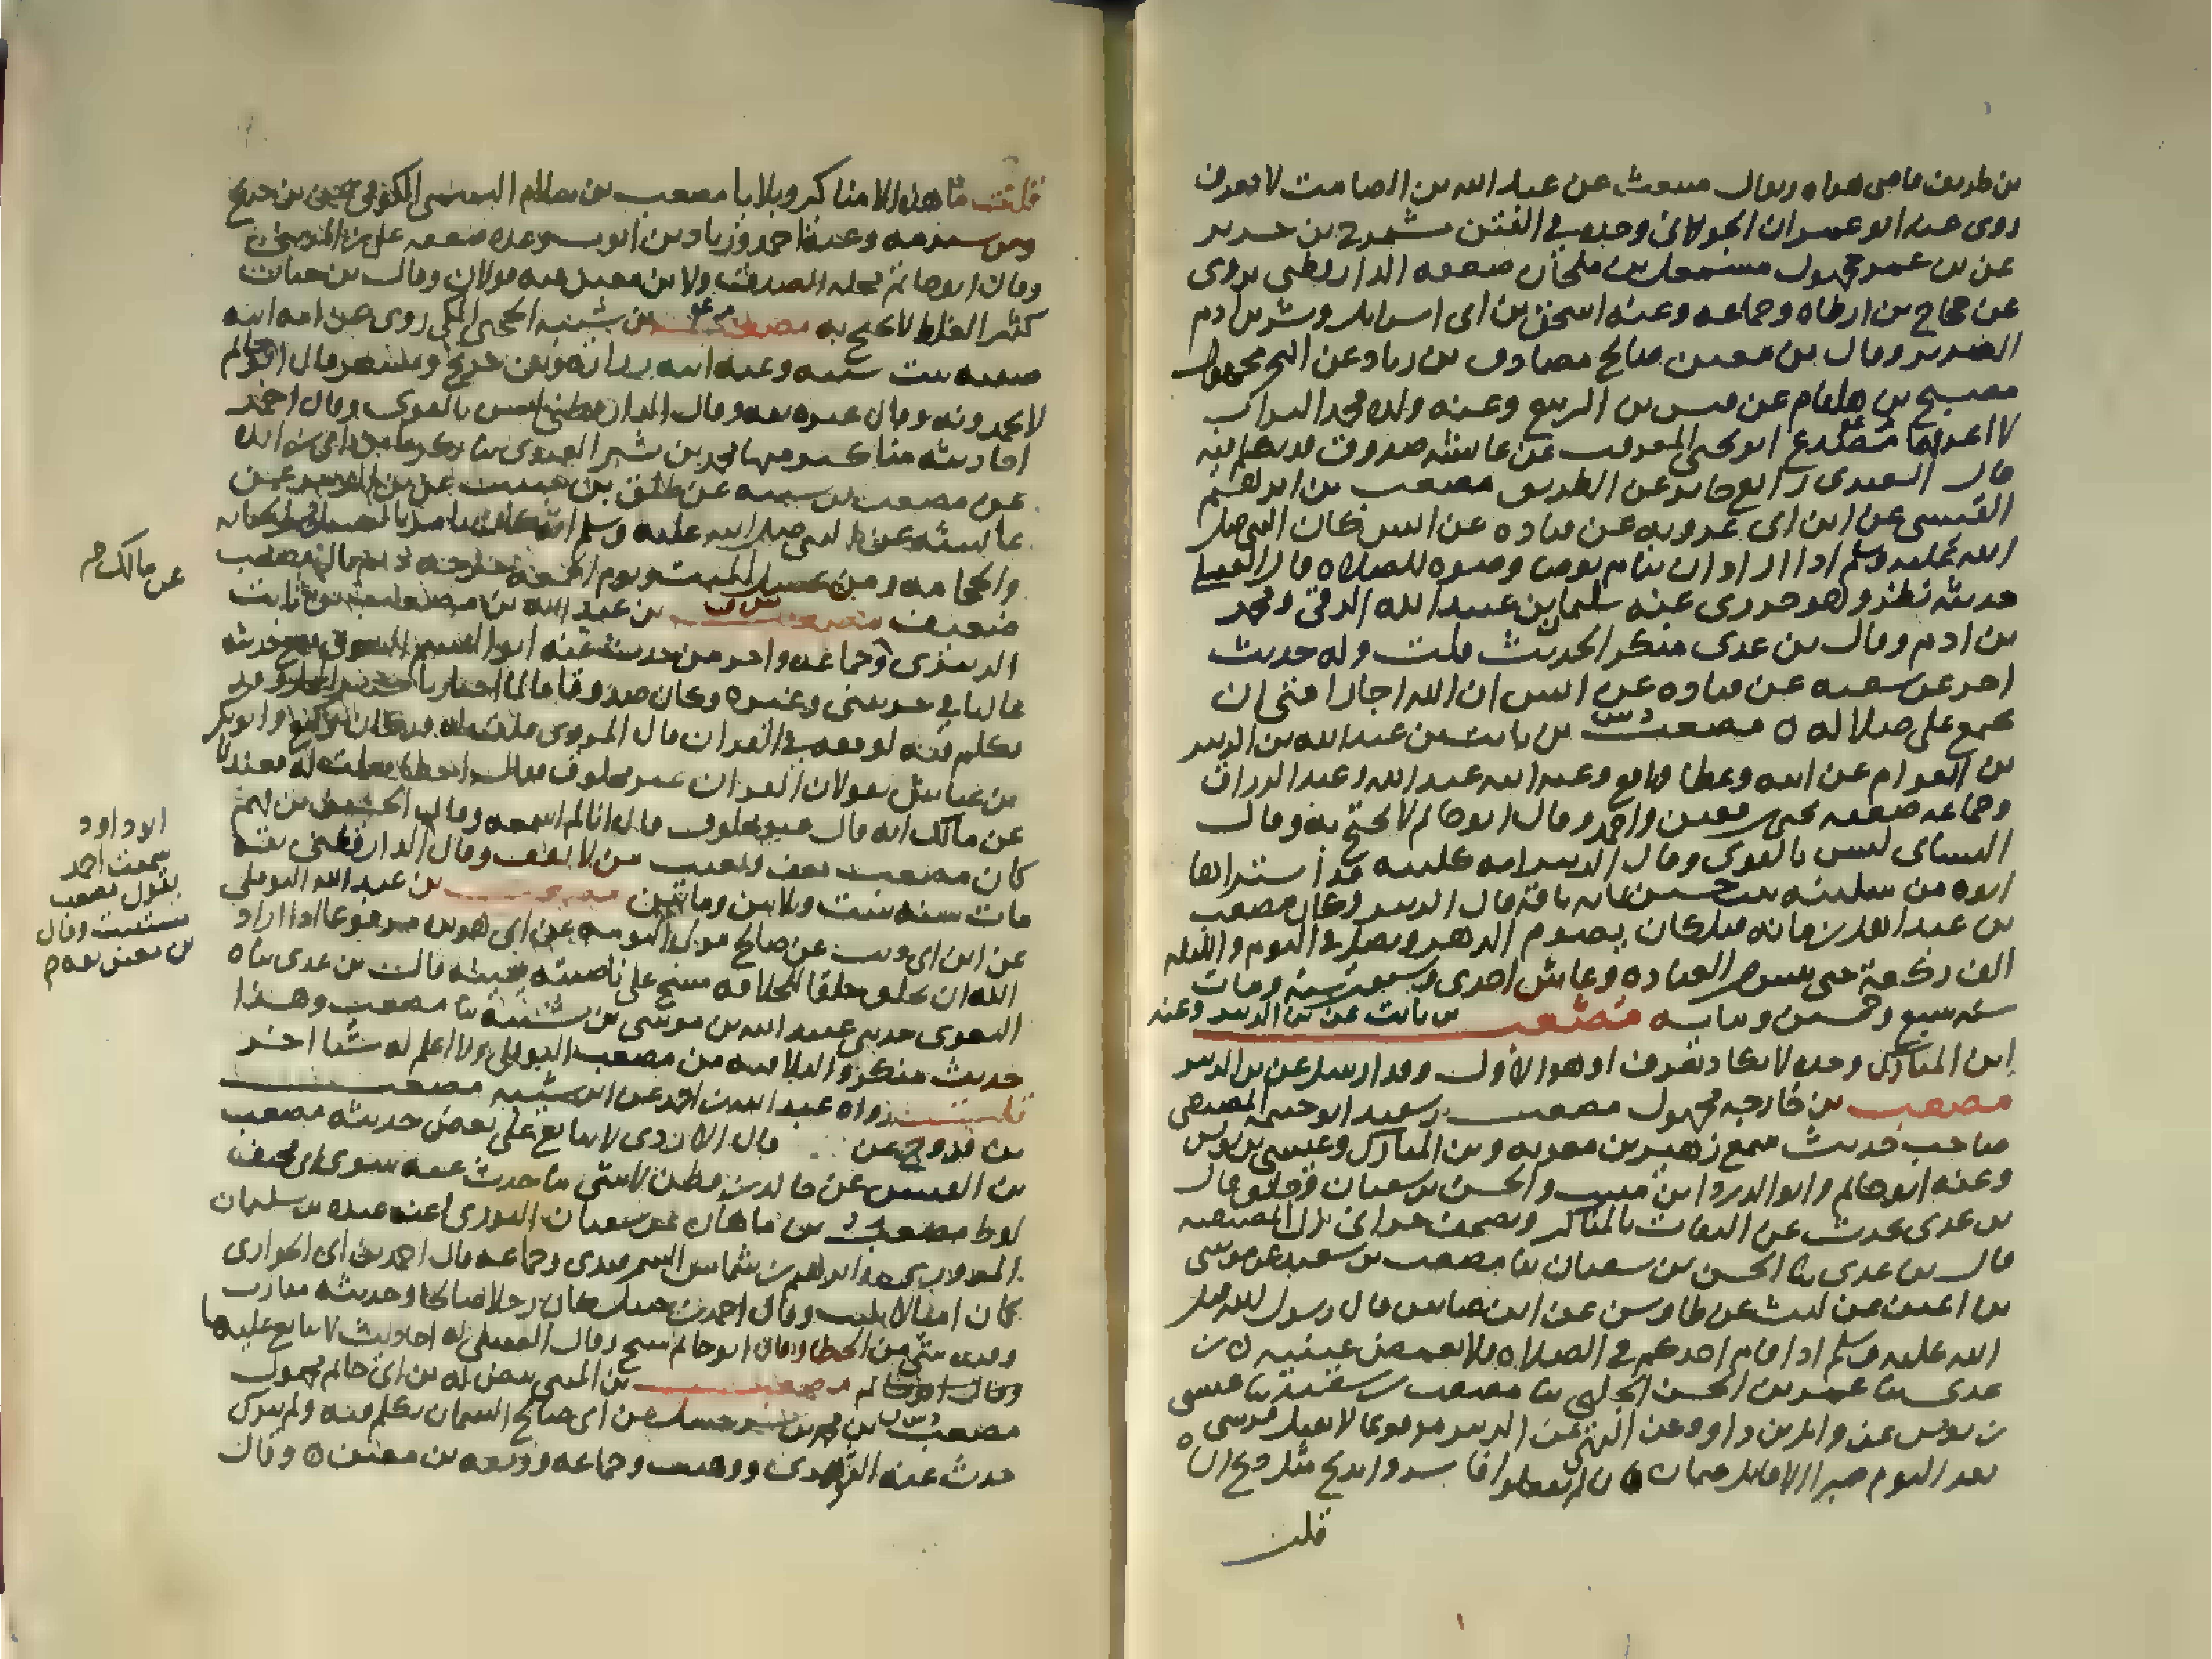 بن طريف قاضي هراه ويقال منبعث عن عبد الله بن الصامت لا يعرف
روى عنه ابو عمران الجوني وحده في الفتن مشمرج بن جرير
عن بن عمر مجهول مشمعل بن ملحان ضعفه الدارقطني يروي
عن حجاج بن ارطاه وجماعه وعنه اسحق بن ابي اسرايل وبشر بن ادم
الضرير وقال بن معين صالح مصادف بن زياد عن مجهول
مصبح بن هلقام عن قيس بن الربيع وعنه ولده محمد البزاز
لا اعرفهما مصدع ابو يحيى المعرقب عن عايشه صدوق قد تكلم فيه
قال السعدي زايغ حايد عن الطريق مصعب بن ابراهيم
القيسي عن ابن ابي عروبه عن قتاده عن انس كان النبي صلى
الله عليه وسلم اذا اراد ان ينام توضا وضوه للصلاه قال العقيلي
حديثه نظر وهو جزري عنه سليمان بن عبيد الله الرقي ومحمد
بن ادم وقال بن عدي منكر الحديث قلت وله حديث
اخر عن شعبه عن قتاده عن انس ان الله اجار امتي ان
تجمع على ضلاله مصعب بن ثابت بن عبد الله بن الزبير
بن العوام عن ابيه وعطا ونافع وعنه ابنه عبد الله وعبد الرزاق
وجماعه ضعفه يحيى بن معين واحمد وقال ابو حاتم لا يحتج به وقال
النساي ليس بالقوي وقال الزبير امه كلبيه قد اشتراها
ابوه من سكينه بنت حسين بمايه ناقه قال الزبير وكان مصعب
من عبد اهل زمانه قيل كان يصوم الدهر ويصلي في اليوم والليله
الف ركعة حتى يبس من العباده وعاش احدى وسبعين سنة ومات
سنه سبع وخمسين ومايه مصعب بن ثابت عن بن الزبير وعنه
ابن المبارك وحده لا يكاد يعرف او هو الاول وقد ارسل عن بن الزبير
مصعب بن خارجه مجهول مصعب بن سعيد ابو خيثمه المصيصي
صاحب حديث سمع زهير بن معويه وبن المبارك وعيسى بن يونس
وعنه ابو حاتم وابو الدرداء بن منيب والحسن بن سفيان وخلق قال
بن عدي يحدث عن الثقات بالمناكير ويصحف حراني نزل المصيصه
قال بن عدي ثنا الحسن بن سفيان ثنا مصعب بن سعيد عن موسى
بن اعين عن ليث عن طاوس عن ابن عباس قال رسول الله صلى
الله عليه وسلم اذا قام احدكم في الصلاه فلا يغمض عينيه بن
عدي ثنا عمر بن الحسن الحلبي ثنا مصعب بن سعيد ثنا عيسى
بن يونس عن وايل بن داوود عن البهي عن الزبير مرفوعا لا يقتل قرشي
بعد اليوم صبرا الا قاتل عثمان فان لم تفعلوا فابشروا بذبح مثل ذبح الشاه
قلت
قلت ما هذه الا مناكير وبلايا مصعب بن سلام التميمي الكوفي عن بن جريج
وبن شبرمه وعنه احمد وزياد بن ايوب وعده ضعفه علي بن المديني
وقال ابو حاتم محله الصدق ولابن معين فيه قولان وقال بن حبان
كثير الغلط لا يحتج به مصعب بن شيبه الحجبي المكي روى عن عمه ابيه
صفيه بنت شيبه وعنه ابنه زرارة وبن جريج ومسعر قال ابو حاتم
لا يحمدونه وقال غيره ثقه وقال الدارقطني ليس بالقوي وقال احمد
احاديثه مناكير منها محمد بن بشر العبدي ثنا زكريا بن ابي زايده
عن مصعب بن شيبه عن طلق بن حبيب عن بن الزبير عن
عايشه عن النبي صلى الله عليه وسلم انه كان يامر بالغسل من الجنابه
والحجامه ومن غسل الميت ويوم الجمعه خرجه د ثم قال مصعب
ضعيف مصعب بن عبد الله بن مصعب بن ثابت
الزبيري عن مالك وجماعه واخر من حدث عنه ابو القسم البغوي وقع حديثه
عاليا في جزيئين وغيره وكان صدوقا عالما اخباريا
تكلم فيه لوقفه في القران قال المروزي قلت له قد كان وكيع وابو بكر
بن عياش يقولان القران غير مخلوق فقال اخطا قلت له فعندنا
عن مالك انه قال غير مخلوق قال انا لم اسمعه وقال الحسين بن فهم
كان مصعب يقف ويعيب من لا يقف وقال الدارقطني ثقه
مات سنه ست وثلاثين ومائتين مصعب بن عبد الله النوفلي
عن ابن ابي ذيب عن صالح مولى التوءمه عن ابي هريره مرفوعا اذا اراد
الله ان يخلق خلقا للخلافه مسح على ناصيته بيمينه قال بن عدي ثناه
البغوي حدثني عبيد الله بن موسى بن شيبه ثنا مصعب وهذا
حديث منكر والبلا فيه من مصعب النوفلي ولا اعلم له شيا اخر
قلت رواه عبد الله بن احمد عن ابن شيبه مصعب
بن فروخ عن قال الازدي لا يتابع على بعض حديثه مصعب
بن القيس عن خالد بن قطن لا شي ما حدث عنه سوى ابي مخنف
لوط مصعب بن ماهان عن سفيان الثوري وعنه عبده بن سليمان
المروزي وابراهيم بن شماس السمرقندي وجماعه قال احمد بن ابي الحواري
كان اميا لا يكتب وقال احمد بن حنبل كان رجلا صالحا وحديثه مقارب
وفيه شي من الخطا وقال ابو حاتم شيخ وقال العقيلي له احاديث لا يتابع عليها
مصعب بن المثنى بيض له بن ابي حاتم مجهول
مصعب بن محمد بن شرحبيل عن ابي صالح السمان تكلم فيه ولم يترك
حدث عنه السفيانان ووهيب وجماعه ووثقه بن معين وقال
عن مالك صح
ابو داود
سمعت احمد
يقول مصعب
مستثبت وقال
بن معين ثقه صح